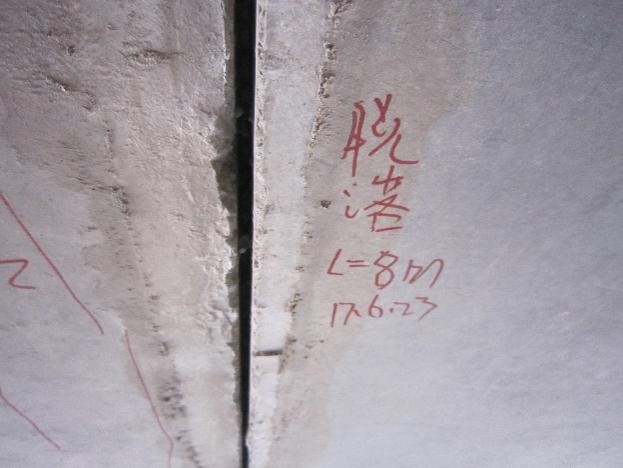 脱
落
L=8m
17.6.23